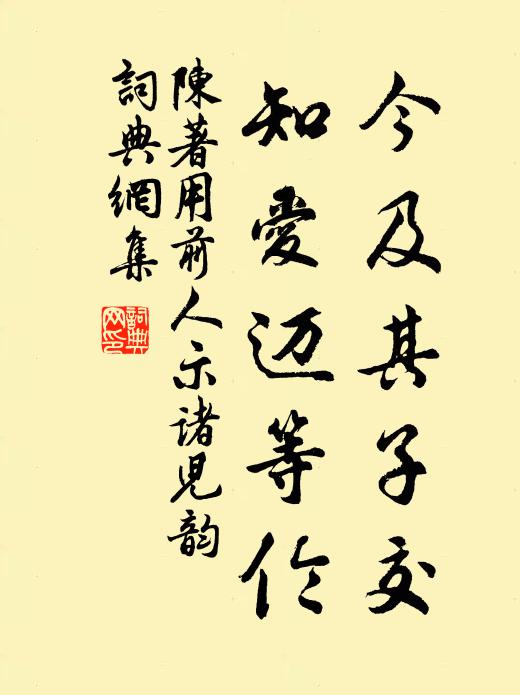 今及其子交
知愛迈等伦
陳著用前人示諸児韵
詞典網集
詞典
网印